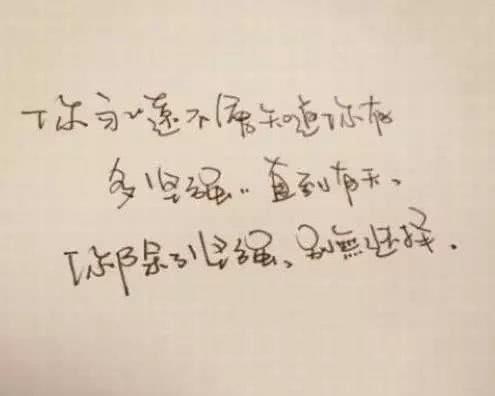 你永遠不知道你有
多坚强.. 直到有天、
你除了坚强、别無选择.